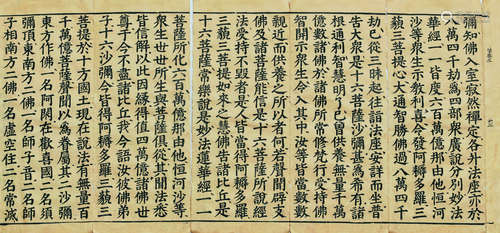 彌知佛入室寂然禪定各升法座亦於
八萬四千劫為四部衆廣說分別妙法
華經一一皆度六百萬億那由他恒河
沙等衆生示教利喜令發阿耨多羅三
藐三菩提心大通智勝佛過八萬四千
劫已從三昧起往詣法座安詳而坐普
告大衆是十六菩薩沙彌甚為希有諸
根通利智慧明了已曾供養無量千萬
億數諸佛於諸佛所常修梵行受持佛
智開示衆生令入其中汝等皆當數數
親近而供養之所以者何若聲聞辟支
佛及諸菩薩能信是十六菩薩所說經
法受持不毀者是人皆當得阿耨多羅
三藐三菩提如來之慧佛告諸比丘是
十六菩薩常樂說是妙法蓮華經一一
菩薩所化六百萬億那由他恒河沙等
衆生世世所生與菩薩俱從其聞法悉
皆信解以此因緣得值四萬億諸佛世
尊于今不盡諸比丘我今語汝彼佛弟
子十六沙彌今皆得阿耨多羅三藐三
菩提於十方國土現在說法有無量百
千萬億菩薩聲聞以為眷屬其二沙彌
東方作佛一名阿閦在歡喜國二名須
彌頂東南方二佛一名師子音二名師
子相南方二佛一名虛空住二名常滅